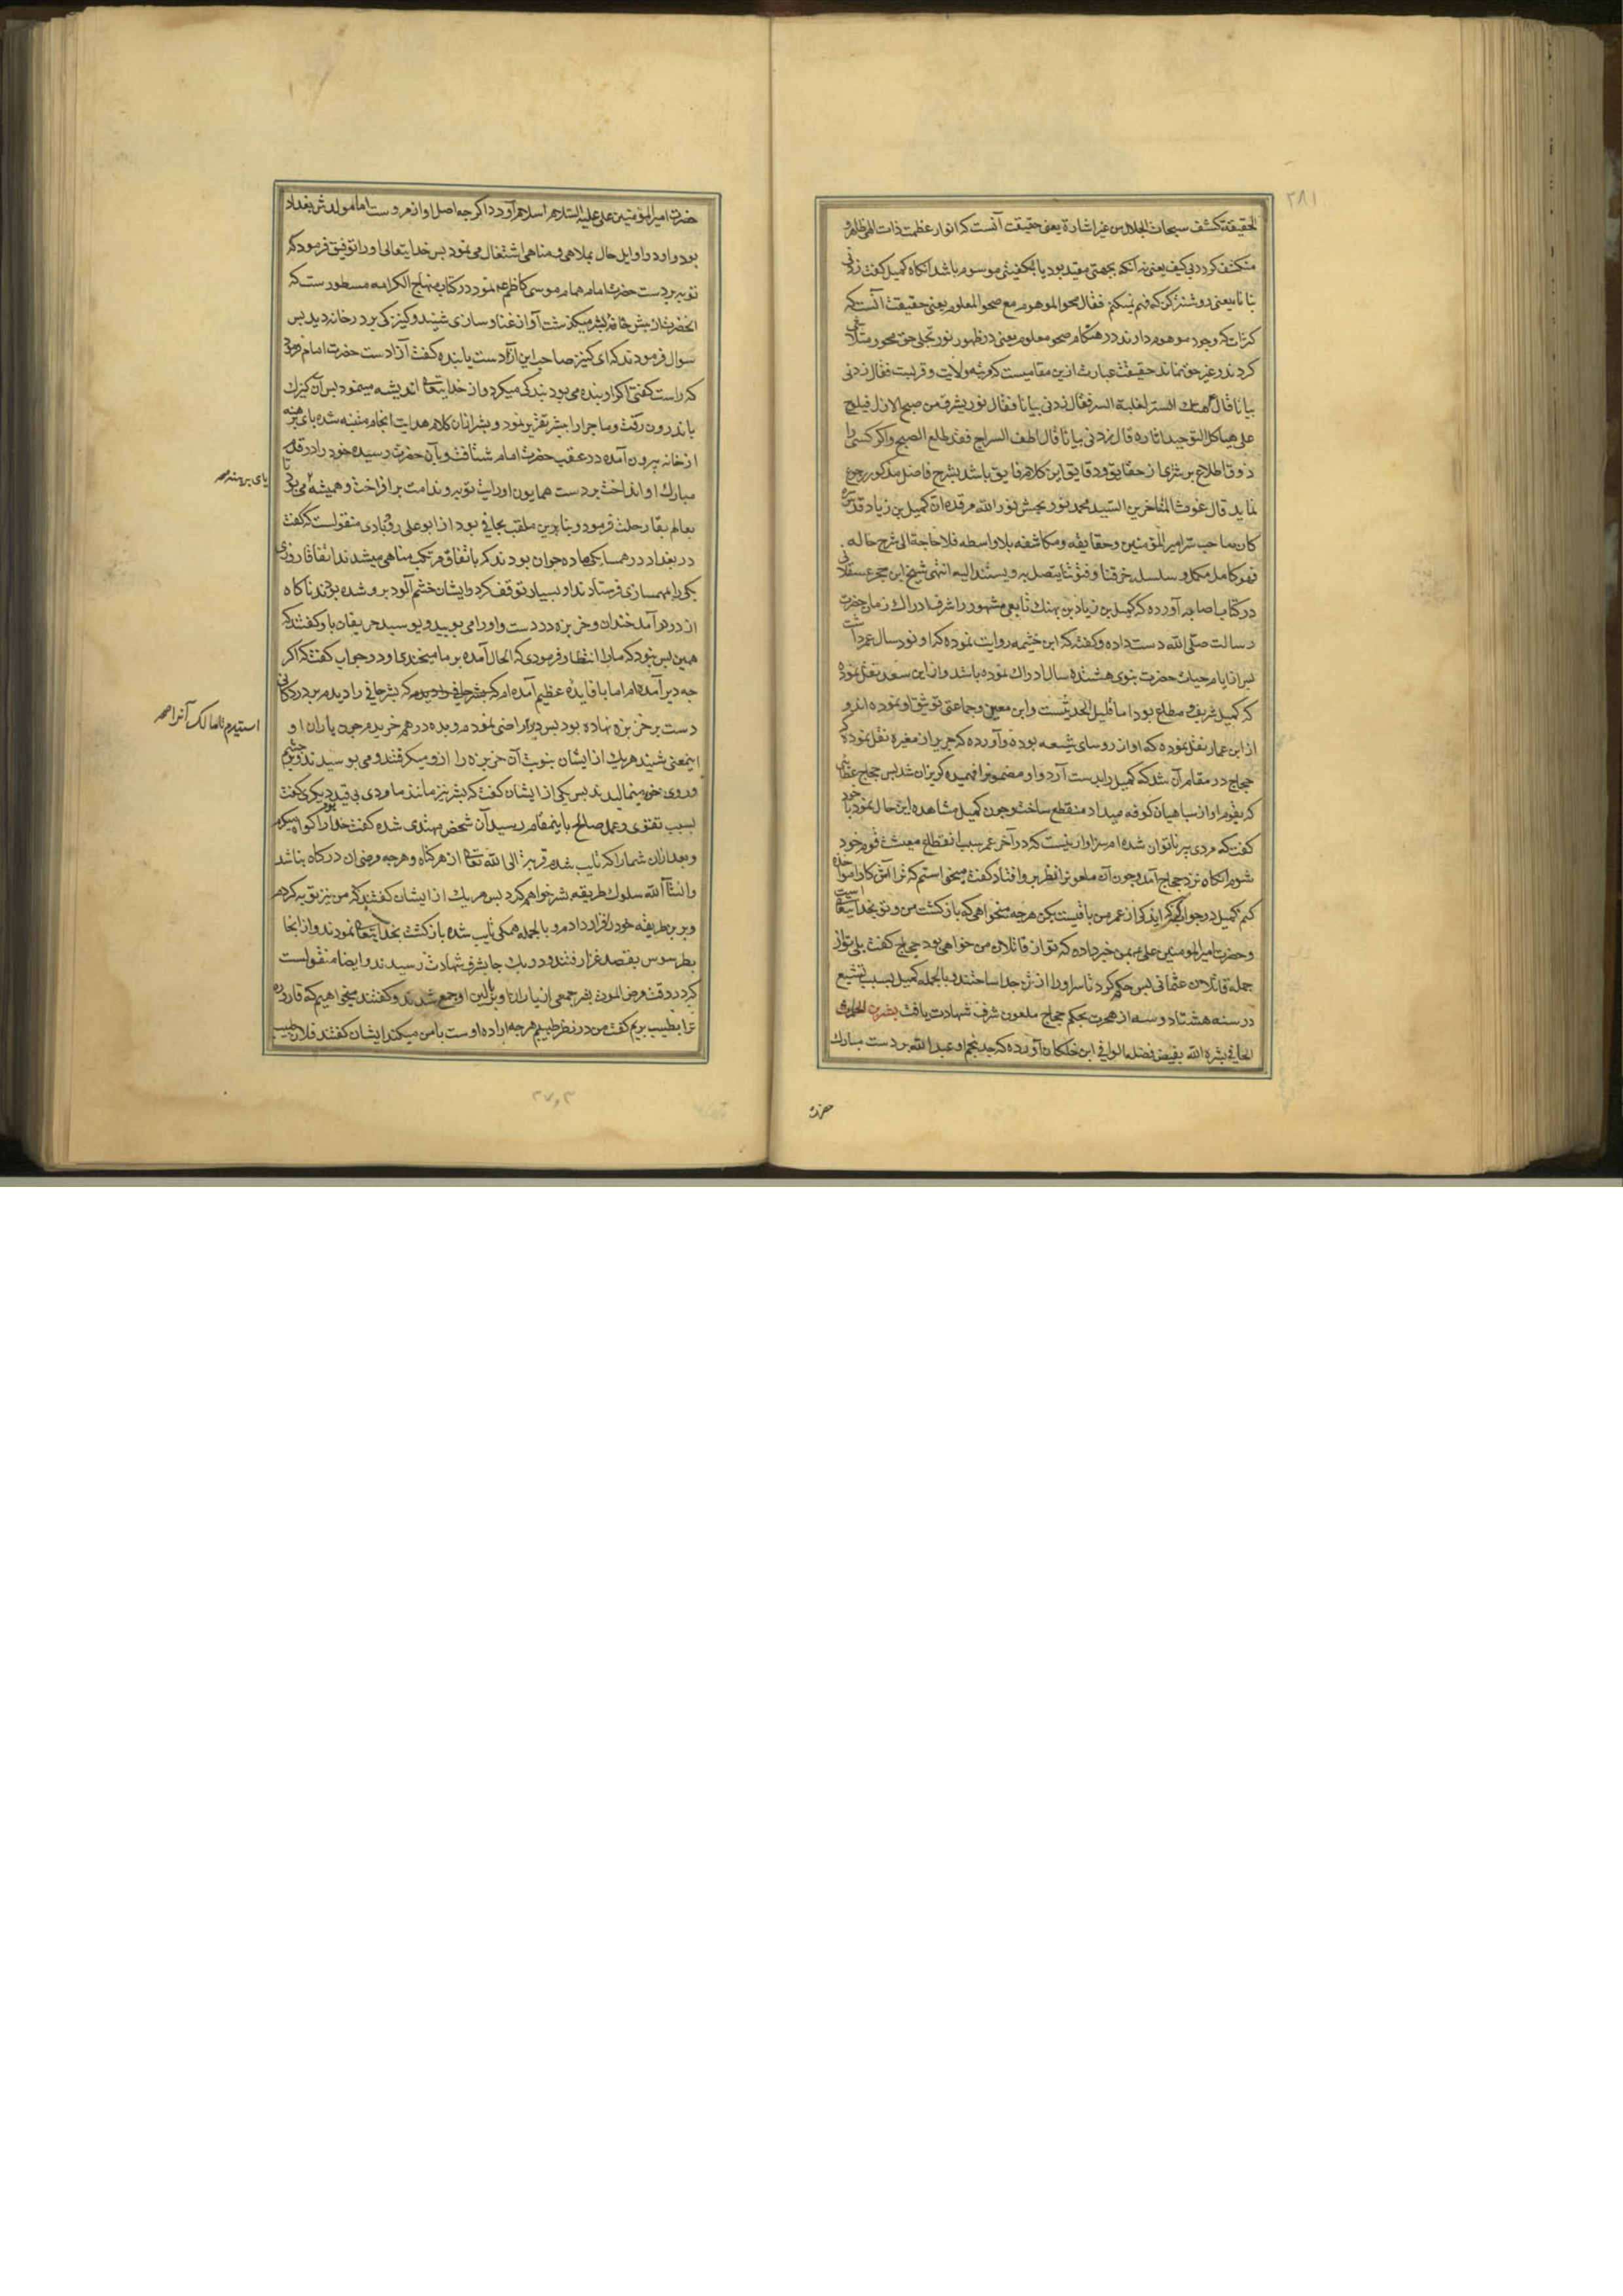 ٢٨١
الحقیقة کشف سبحات الجلال من غیر اشارة یعنی حقیقت آنست که انوار عظمت ذات الهی ظاهر و
منکشف کردد بی کیف یعنی نه آنکه بجهتی مقید بود یا بکیفیتی موسوم باشد انکاه کمیل کفت زدنی
بیانا یعنی روشنتر کن که فهم نمیکنم فقال محو الموهوم مع صحو المعلوم یعنی حقیقت آنست که
کثرات که وجود موهوم دارند در هنکام صحو معلوم یعنی در ظهور نور تجلی حق محو و متلاشی
کردند و غیر حق نماند حقیقت عبارت ازین مقامیست که مرتبه ولایت و قربست فقال زدنی
بیانا قال هتک الستر لغلبة السر فقال زدنی بیانا فقال نور یشرق من صبح الازل فیلوح
علی هیاکل التوحید اثاره قال زدنی بیانا قال اطف السراج فقد طلع الصبح و اکر کسی را
ذوق اطلاع بر شرای از حقایق و دقایق این کلام فایق باشد بشرح فاضل مذکور رجوع
نماید قال غوث المتاخرین السید محمد نور بخش نور الله مرقده ان کمیل بن زیاد قدس سره
کان صاحب سر امیر المؤمنین و حقایقه و مکاشفه بلا واسطه فلا حاجة الی شرح حاله
فهو کامل مکمل و سلسله خرقتنا و فتوتنا یتصل به و یستند الیه انتهی شیخ ابن حجر عسقلانی
در کتاب اصابه آورده که کمیل بن زیاد بن نهیک تابعی مشهور را شرف ادراک زمان حضرت
رسالت صلی الله دست داده و کفته که ابن خثیمه روایت نموده که او نود سال عمر داشت
پس از ایام حیات حضرت نبوی هشتده سال ادراک نموده باشد و از ابن سعد نقل نموده
که کمیل شریف و مطاع بود اما قلیل الحدیثست و ابن معین و جماعتی توثیق او نموده اند و
از ابن عمار نقل نموده که او از روسای شیعه بوده و آورده که جریر از مغیره نقل نموده که
حجاج در مقام آن شد که کمیل را بدست آرد و او مضمونرا فهمیده کریزان شد پس حجاج عطائی
که بقوم او از سپاهیان کوفه میداد منقطع ساخت و چون کمیل مشاهده این حال نمود با خود
کفت که مردی پیر ناتوان شده ام سزاوار نیست که در آخر عمر سبب انقطاع معیشت قوم خود
شوم انکاه نزد حجاج آمد و چون آن ملعونرا نظر برو افتاد کفت میخواستم که ترا
کنم کمیل در جواب کفت که اندکی از عمر من باقیست بکن هرچه میخواهی که بازکشت من و تو بخدایتعالی است
و حضرت امیر المومنین علی بمن خبر داده که تو از قاتلان من خواهی بود حجاج کفت بلی تو از
جمله قاتلان عثمانی پس حکم کرد تا سر او را از تن جدا ساختند و بالجمله کمیل بسبب تشیع
در سنه هشتاد و سه از هجرت بحکم حجاج ملعون شرف شهادت یافت بشر بن الحارث
الحافی بشره الله بفیض فضله الوافی ابن خلکان آورده که جد پنجم او عبد الله بر دست مبارک
حضرت
حضرت امیر المؤمنین علی علیه السلام اسلام آورد اکرچه اصل او از مروست اما مولدش بغداد
بود و او در اوایل حال بملاهی و مناهی اشتغال می نمود پس خدایتعالی او را توفیق فرمود که
توبه بر دست حضرت امام همام موسی کاظم نمود در کتاب منهاج الکرامه مسطورست که
انحضرت از پیش خانه بشر میکذشت آواز غنا و سازی شنید و کنیزکی بر در خانه دید پس
سوال فرمودند که ای کنیز صاحب این آزادست یا بنده کفت آزادست حضرت امام فرمود
که راست کفتی اکر او بنده می بود بندکی میکرد و از خدایتعالی اندیشه مینمود پس آن کنیزک
باندرون رفت و ماجرا را ببشر تقریر نمود و بشر از ان کلام هدایت انجام متنبه شده پای برهنه
از خانه بیرون آمده در عقب حضرت امام شتافت و بآن حضرت رسیده خود را در قدم
مبارک او انداخت و بر دست همایون او رایت توبه و ندامت برافراخت و همیشه می بود تا
بعالم بقا رحلت فرمود و بنابرین ملقب بحافی بود از ابو علی رودباری منقولست که کفت
در بغداد در همسایکی ما ده جوان بودند که باتفاق مرتکب مناهی میشدند اتفاقا روزی
یکی را بمهمسازی فرستادند او بسیار توقف کرد و ایشان خشم آلود برو شده بودند ناکاه
از در درآمد خندان و خربزه در دست و او را می بویید و بوسید حریفان باو کفتند که
همین بس نبود که ما را انتظار فرمودی که الحال آمده بر ما میخندی او در جواب کفت که اکر
چه دیر آمده ام اما با فایده عظیم آمده ام که بشر حافی را دیدم بر در دکانی
دست بر خربزه نهاده بود پس نمودم و بده درهم خریدم چون یاران او
اینمعنی شنیدند هریک از ایشان بنوبت آن خربزه را ازو میکرفتند و می بوسیدند و بچشم
و روی خود میمالیدند پس یکی از ایشان کفت که بشر نیز مانند ما مردی بی قید بود دیکری کفت
بسبب تقوی و عمل صالح باینمقام رسید آن شخص مهتدی شده کفت خدا را کواه میکیرم
و بعد از ان شما را که تایب شدم قربة الی الله تعالی از هر کناه و هرچه مرضی ان درکاه نباشد
و انشاآ الله سلوک طریقه بشر خواهم کرد پس هریک از ایشان کفتند که من نیز توبه کردم
و برین طریقه خود را قرار دادم و بالجمله همکی تایب شده بازکشت بخدایتعالی نمودند و از انجا
بطرسوس بقصد غزا رفتند و در یک جا بشرف شهادت رسیدند و ایضا منقولست
که در وقت مرض الموت بشر جمعی از یاران او ببالین او جمع شدند و کفتند میخواهیم که قاروره
ترا بطبیب بریم کفت من در نظر طبیبم هرچه اراده اوست با من میکند ایشان کفتند فلان طبیب
پای برهنه